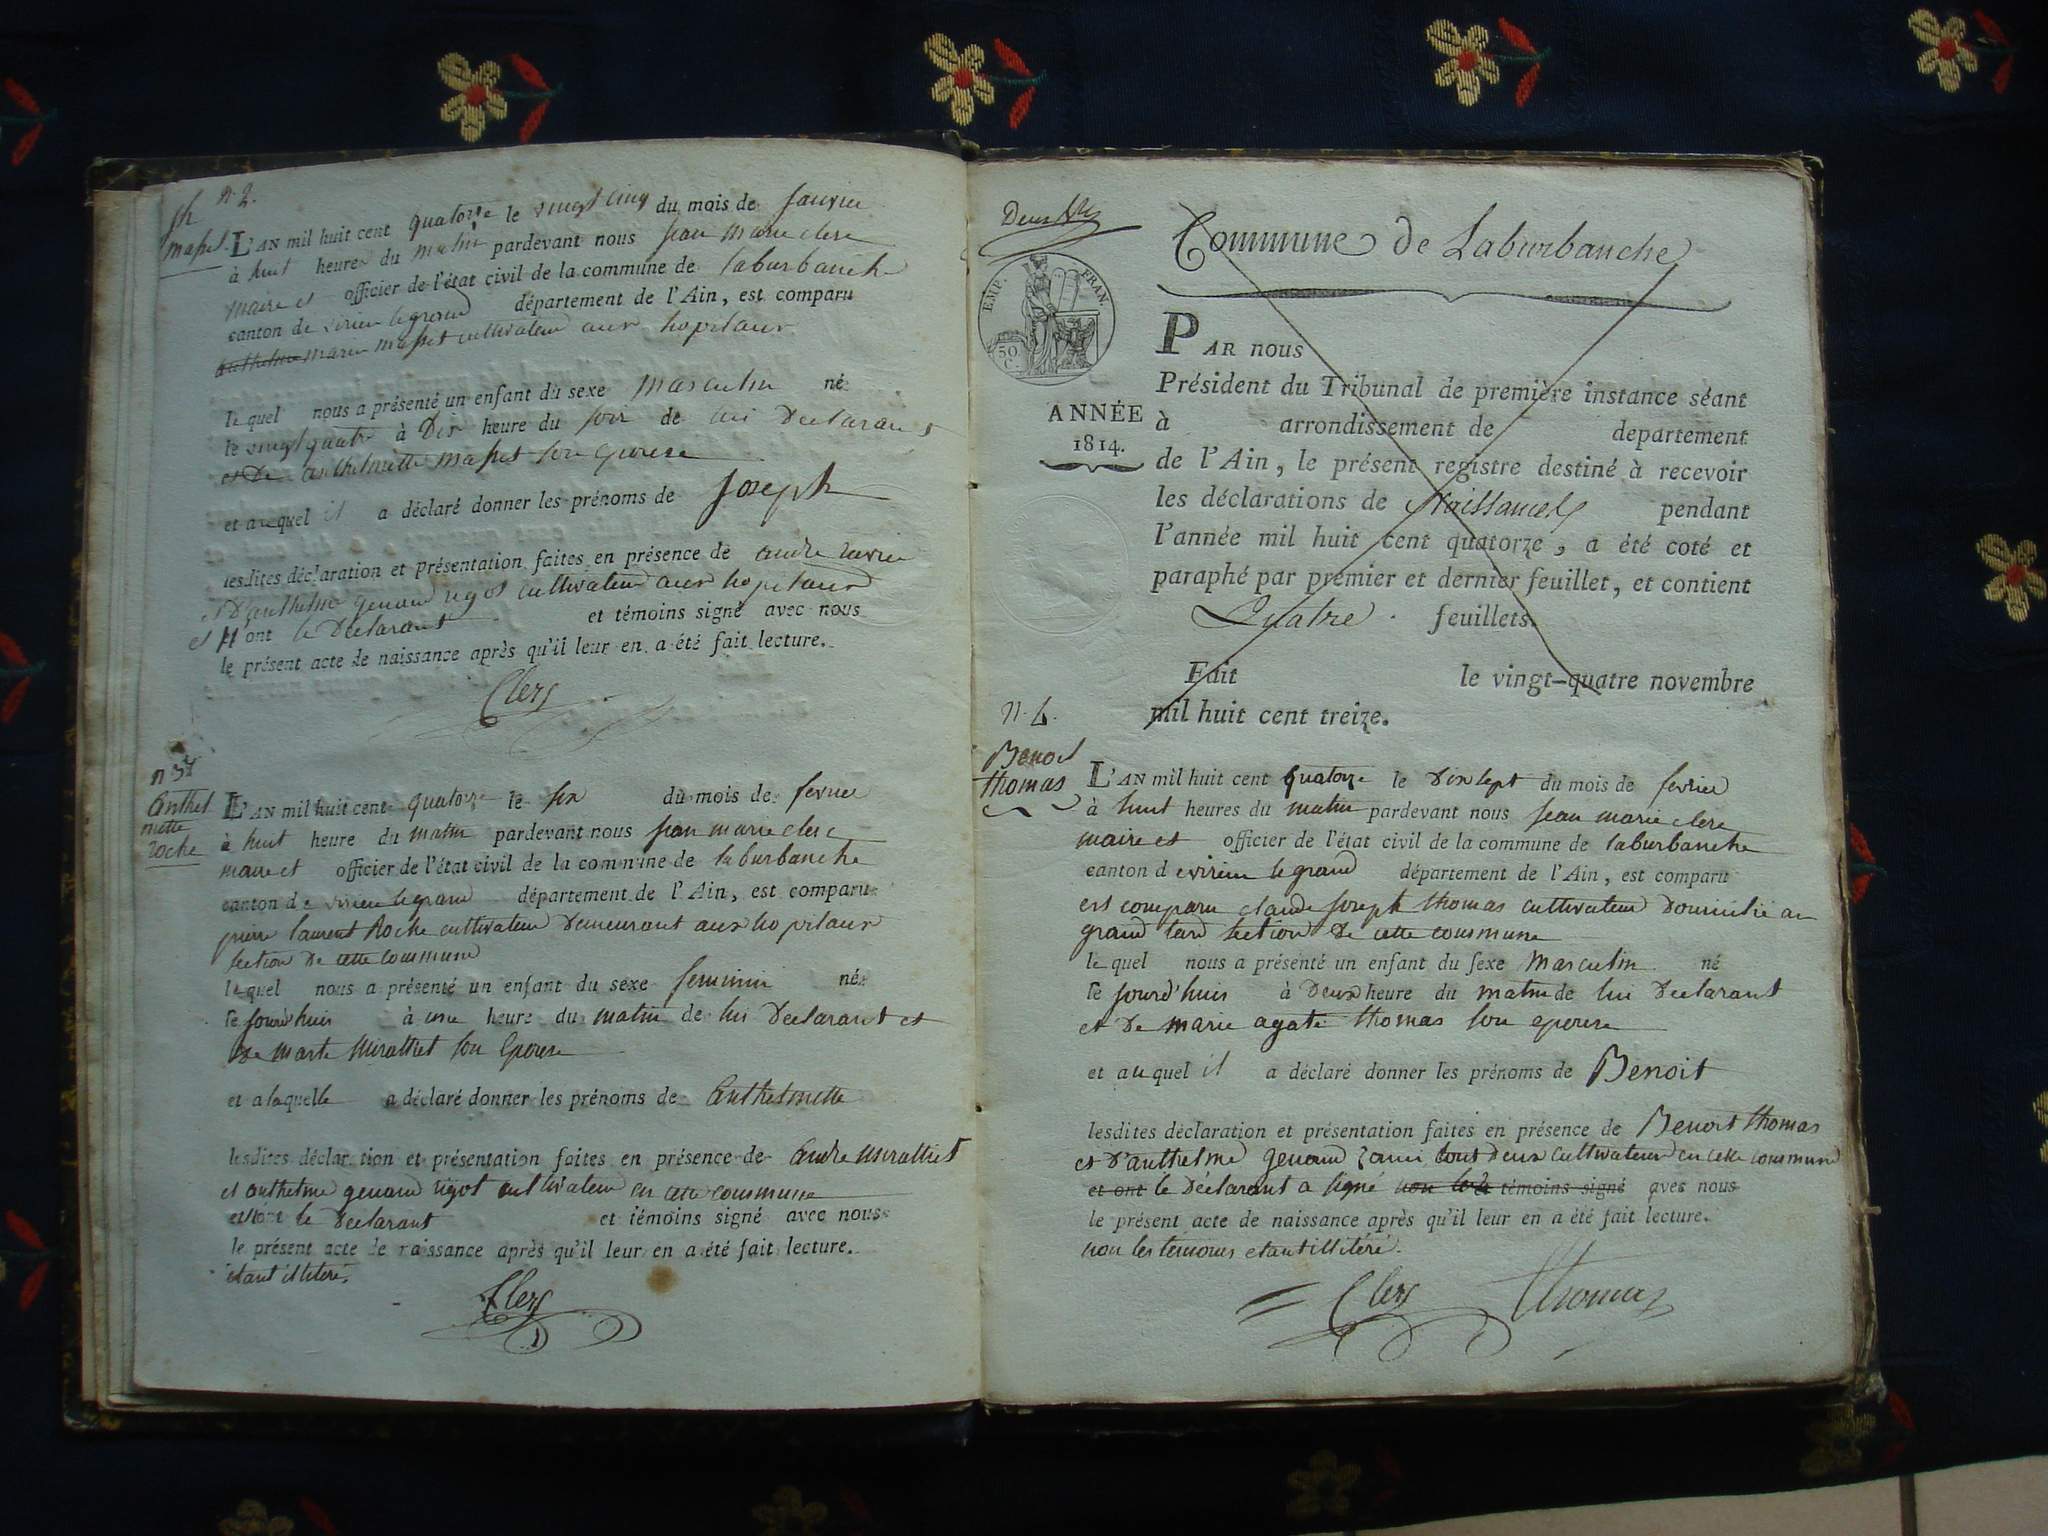 n. 2.
L'AN mil huit cent quatorze le vingt cinq du mois de janvier
à huit heures du matin pardevant nous jean marie clerc
maire et officier de l'état civil de la commune de laburbanche
canton de virieu legrand département de l'Ain, est comparu
anthelme marin masset cultivateur aux hopitaux
lequel nous a présenté un enfant du sexe masculin né
le vingt quatre à Dix heure du soir de lui Declarant
et De anthelmette masset son epouse
et auquel il a déclaré donner les prénoms de Joseph
lesdites déclaration et présentation faites en présence de andre
et D'anthelme genand rigot cultivateur aux hopitaux
et n'ont le Declarant et témoins signé avec nous
le présent acte de naissance après qu'il leur en a été fait lecture.
Clerc
n 3
Anthel
mette
roche
L'AN mil huit cent quatorze le six du mois de fevrier
à huit heure du matin pardevant nous jean marie clerc
maire et officier de l'état civil de la commune de laburbanche
canton de virieu legrand département de l'Ain, est comparu
pierre laurent Roche cultivateur Demeurant aux hopitaux
section De cette commune
lequel nous a présenté un enfant du sexe feminin né
le jourd'huis à une heure du matin de lui Declarant et
De marte Miralliet son Epouse
et alaquelle a déclaré donner les prénoms de Anthelmette
lesdites déclaration et présentation faites en présence de Andre Miralliet
et anthelme genand rigot cultivateur en cette commune
et n'ont le Declarant et témoins signé avec nous
le présent acte de naissance après qu'il leur en a été fait lecture.
étant illiteré.
Clerc
Commune de Laburbanche
EMP. FRAN.
50
C.
ANNÉE
1814.
PAR nous
Président du Tribunal de première instance séant
à arrondissement de departement
de l'Ain, le présent registre destiné à recevoir
les déclarations de Naissances pendant
l'année mil huit cent quatorze, a été coté et
paraphé par premier et dernier feuillet, et contient
Quatre feuillets.
Fait le vingt-quatre novembre
mil huit cent treize.
n. 4.
Benoit
thomas
L'AN mil huit cent quatorze le Dix sept du mois de fevrier
à huit heures du matin pardevant nous jean marie clerc
maire et officier de l'état civil de la commune de laburbanche
canton de virieu legrand département de l'Ain, est comparu
est comparu claude joseph thomas cultivateur Domicilié au
grand tard section De cette commune
lequel nous a présenté un enfant du sexe Masculin né
le jourd'huis à Deux heure du matin de lui Declarant
et De marie agate thomas son epouse
et auquel il a déclaré donner les prénoms de Benoit
lesdites déclaration et présentation faites en présence de Benoit thomas
et D'anthelme genand tous deux cultivateur en cette commune
et ont le Déclarant a signé non les témoins signé avec nous
le présent acte de naissance après qu'il leur en a été fait lecture.
non les temoins etant illitéré.
Clerc Thomas